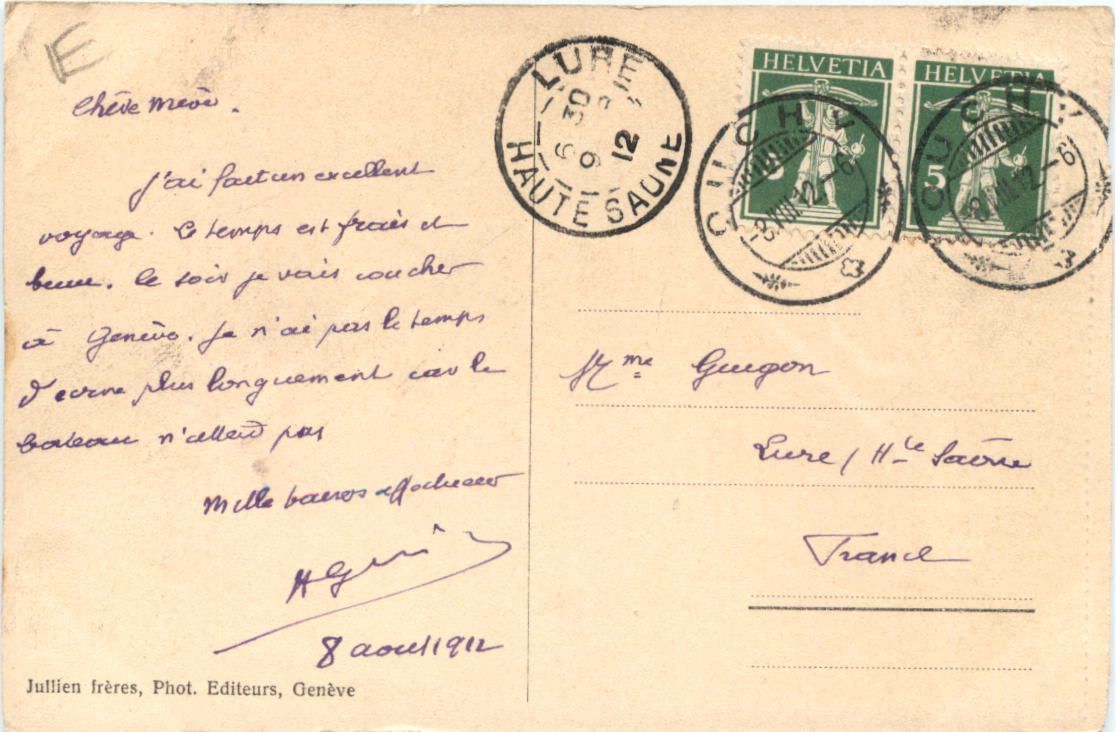 E
Chère Mémé.
J'ai fait un excellent
voyage. Le temps est frais et
beau. Ce soir je vais coucher
à Genève. Je n'ai pas le temps
d'ecrire plus longuement car le
bateau n'attend pas
Mille baisers affectueux
8 aout 1912
Jullien frères, Phot. Editeurs, Genève
LURE
6 30
9
12
HAUTE SAONE
HELVETIA
HELVETIA
5
OUCHY
-8.VIII.12-6
OUCHY
-8.VIII.12-6
Mme Guigon
Lure / Hte Saône
France